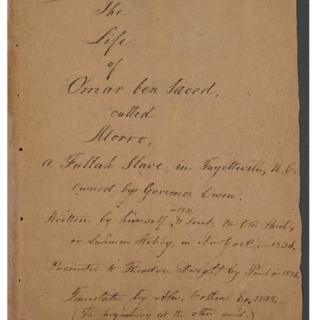 The
Life
of
Omar ben Saeed,
called
Morro,
a Fullah Slave, in Fayetteville, N.C.
Owned by Governor Owen.
Written by himself in 1831. & sent to Old Paul,
or Lahmen Kebby, in New York, in 1836.
Presented to Theodore Dwight by Paul in 1836.
Translated by Alex. Cotheal Esq. 1848.
(The beginning at the other end.)